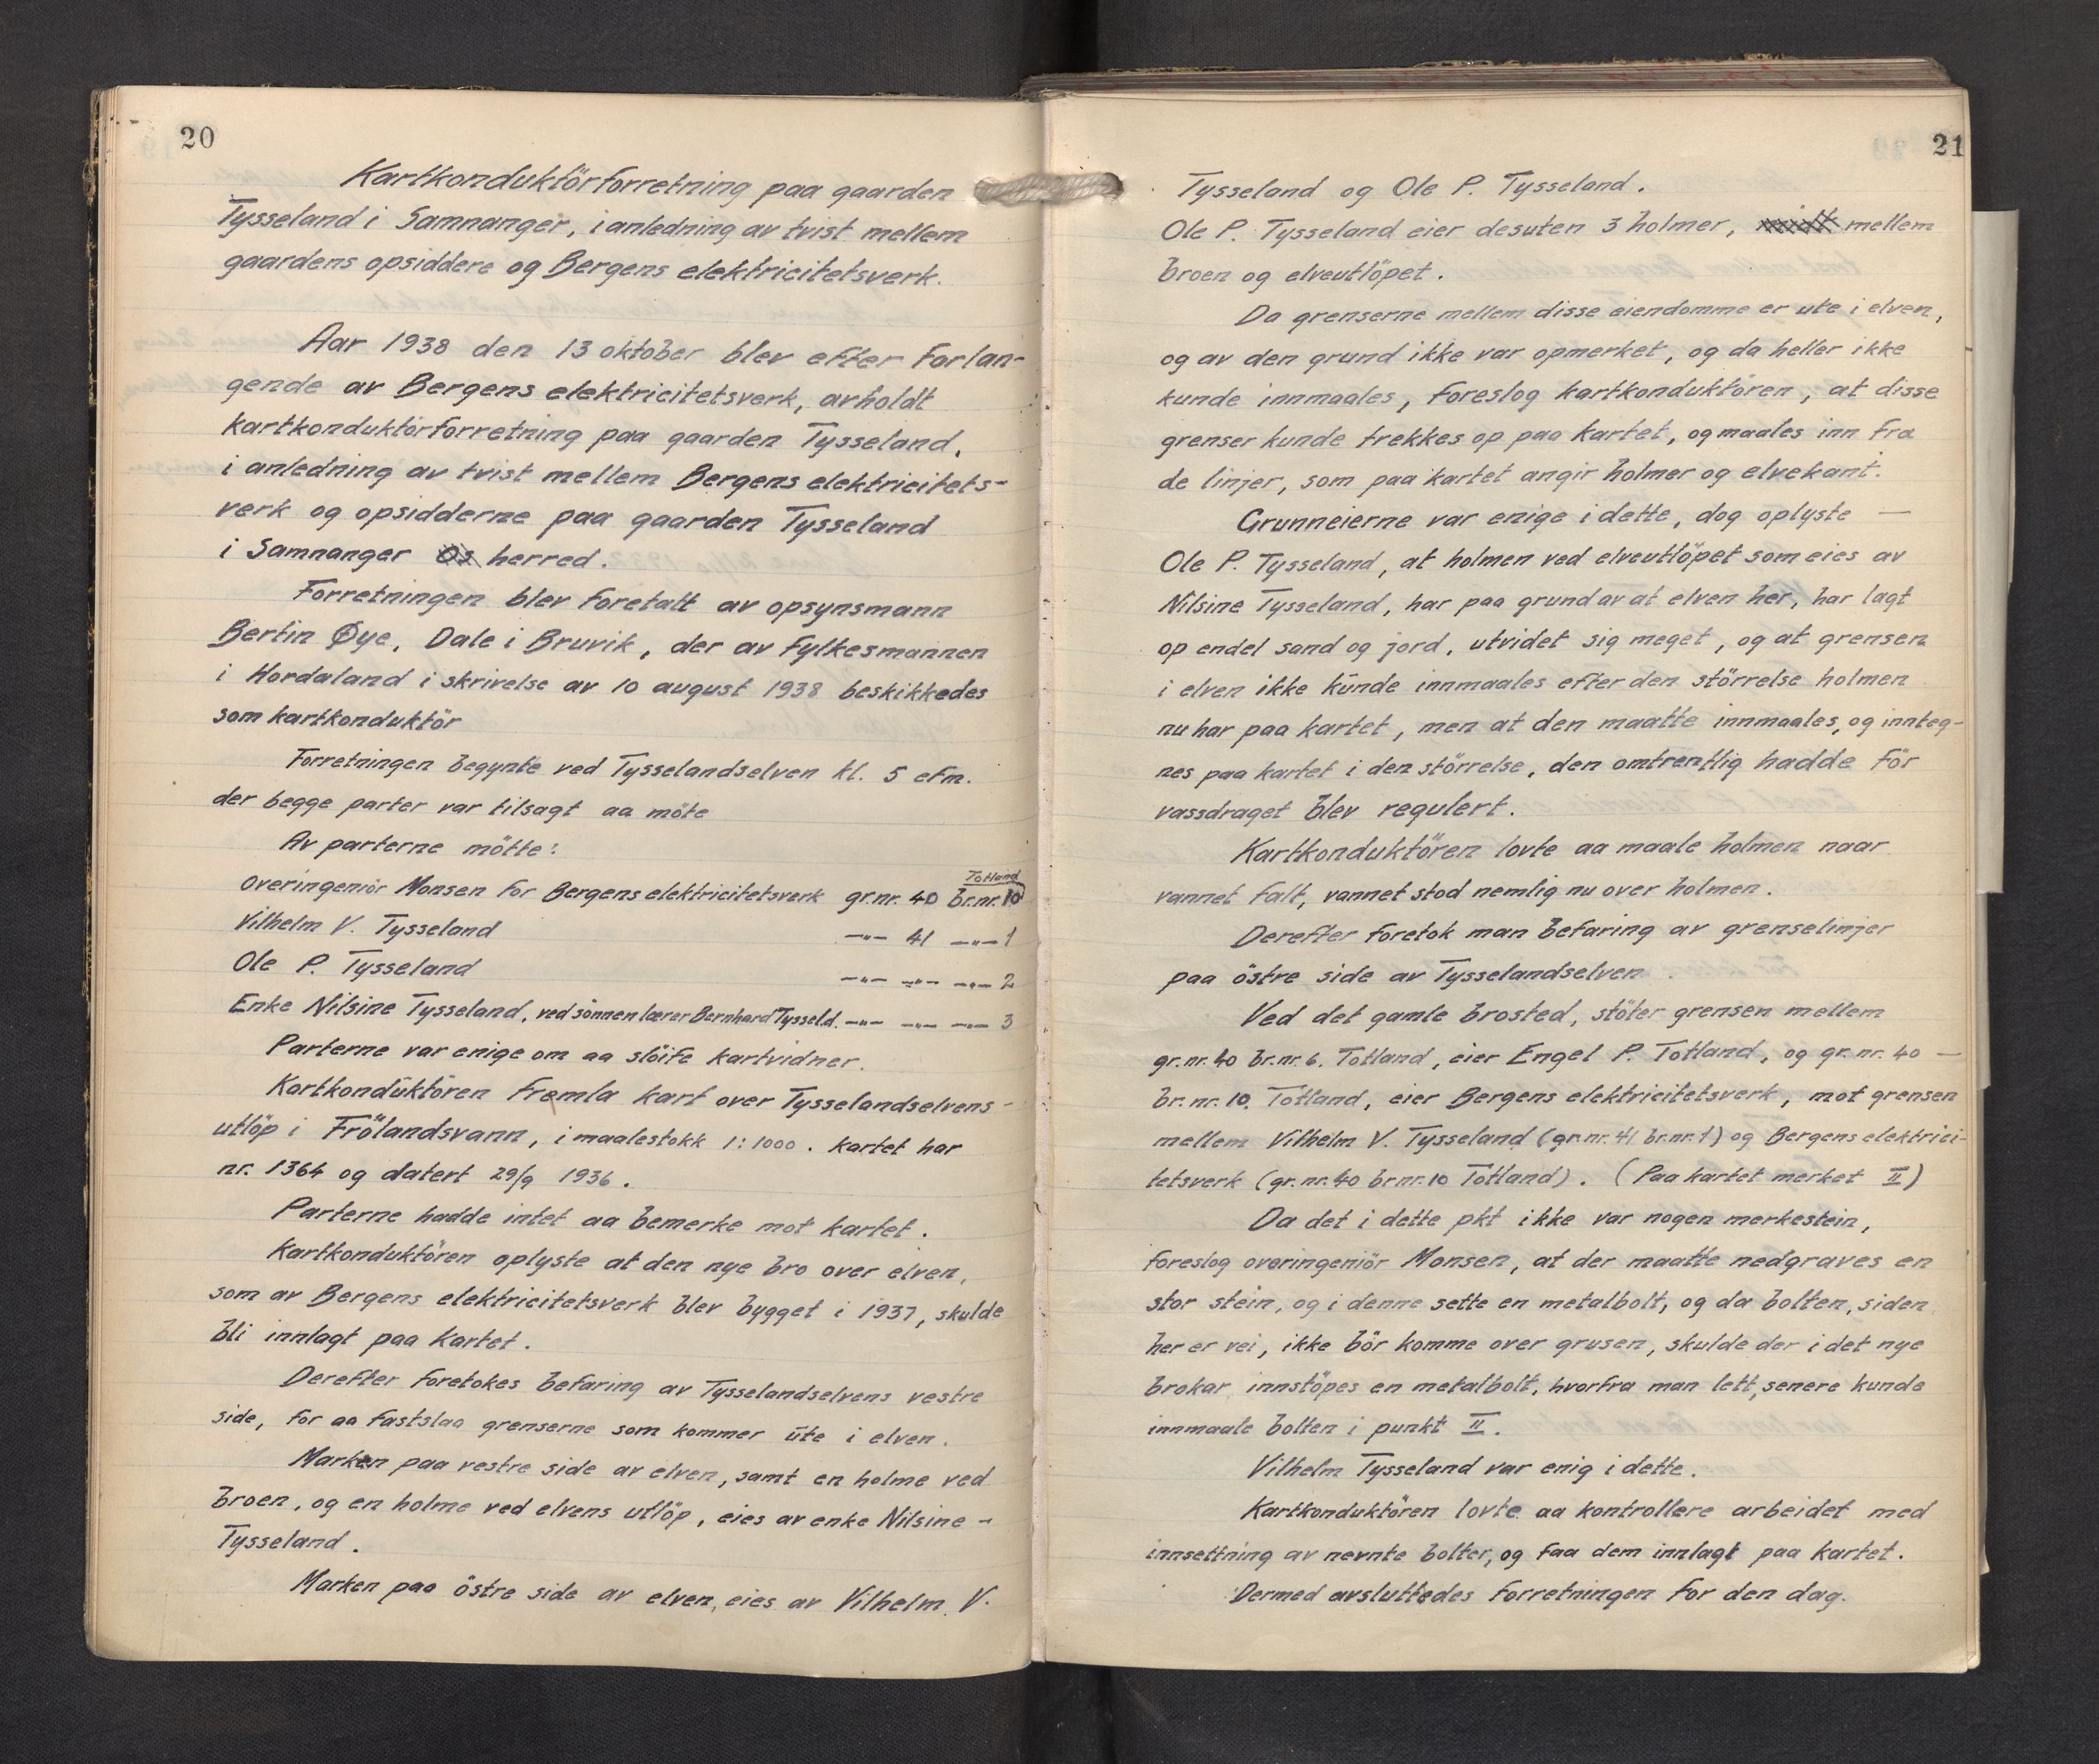 20
Kartkonduktörforretning paa gaarden
Tysseland i Samnanger, i anledning av tvist mellem
gaardens opsiddere og Bergens elektricitetsverk.
Aar 1938 den 13 oktober blev efter forlan-
gende av Bergens elektricitetsverk, avholdt
kartkonduktörforretning paa gaarden Tysseland,
i anledning av tvist mellem Bergens elektricitets-
verk og opsidderne paa gaarden Tysseland
i Samnanger Os herred.
Forretningen blev foretatt av opsynsmann
Bertin Øye, Dale i Bruvik, der av fylkesmannen
i Hordaland i skrivelse av 10 august 1938 beskikkedes
som kartkonduktör
Forretningen begynte ved Tysselandselven kl. 5 efm.
der begge parter var tilsagt aa möte
Av parterne mötte:
Totland
Overingeniör Monsen for Bergens elektricitetsverk gr.nr. 40 br.nr. 10
Vilhelm V. Tysseland —"— 41 —"— 1
Ole P. Tysseland —"— —"— —"— 2
Enke Nilsine Tysseland, ved sönnen lærer Bernhard Tysseld. —"— —"— —"— 3
Parterne var enige om aa slöife kartvidner.
Kartkonduktören fremla kart over Tysselandselvens-
utlöp i Frölandsvann, i maalestokk 1:1000. Kartet har
nr. 1364 og datert 29/9 1936.
Parterne hadde intet aa bemerke mot kartet.
Kartkonduktören oplyste at den nye bro over elven,
som av Bergens elektricitetsverk blev bygget i 1937, skulde
bli innlagt paa kartet.
Derefter foretokes befaring av Tysselandselvens vestre
side, for aa fastslaa grenserne som kommer ute i elven.
Marken paa vestre side av elven, samt en holme ved
broen, og en holme ved elvens utlöp, eies av enke Nilsine -
Tysseland.
Marken paa östre side av elven, eies av Vilhelm V.
21
Tysseland og Ole P. Tysseland.
Ole P. Tysseland eier desuten 3 holmer, midt mellem
broen og elveutlöpet.
Da grenserne mellem disse eiendomme er ute i elven,
og av den grund ikke var opmerket, og da heller ikke
kunde innmaales, foreslog kartkonduktören, at disse
grenser kunde trekkes op paa kartet, og maales inn fra
de linjer, som paa kartet angir holmer og elvekant.
Grunneierne var enige i dette, dog oplyste —
Ole P. Tysseland, at holmen ved elveutlöpet som eies av
Nilsine Tysseland, har paa grund av at elven her, har lagt
op endel sand og jord, utvidet sig meget, og at grensen
i elven ikke kunde innmaales efter den störrelse holmen
nu har paa kartet, men at den maatte innmaales, og innteg-
nes paa kartet i den störrelse, den omtrentlig hadde för
vassdraget blev regulert.
Kartkonduktören lovte aa maale holmen naar
vannet falt, vannet stod nemlig nu over holmen.
Derefter foretok man befaring av grenselinjer
paa östre side av Tysselandselven.
Ved det gamle brosted, stöter grensen mellem
gr.nr. 40 br.nr. 6. Totland, eier Engel P. Totland, og gr. nr. 40 —
br. nr. 10. Totland, eier Bergens elektricitetsverk, mot grensen
mellem Vilhelm V. Tysseland (gr.nr. 41 br.nr. 1) og Bergens elektrici-
tetsverk (gr. nr. 40 br nr. 10 Totland). (Paa kartet merket II)
Da det i dette pkt ikke var nogen merkestein,
foreslog overingeniör Monsen, at der maatte nedgraves en
stor stein, og i denne sette en metalbolt, og da bolten, siden
her er vei, ikke bör komme over grusen, skulde der i det nye
brokar innstöpes en metalbolt, hvorfra man lett, senere kunde
innmaale bolten i punkt II.
Vilhelm Tysseland var enig i dette.
Kartkonduktören lovte aa kontrollere arbeidet med
innsettning av nevnte bolter, og faa dem innlagt paa kartet.
Dermed avsluttedes forretningen for den dag.